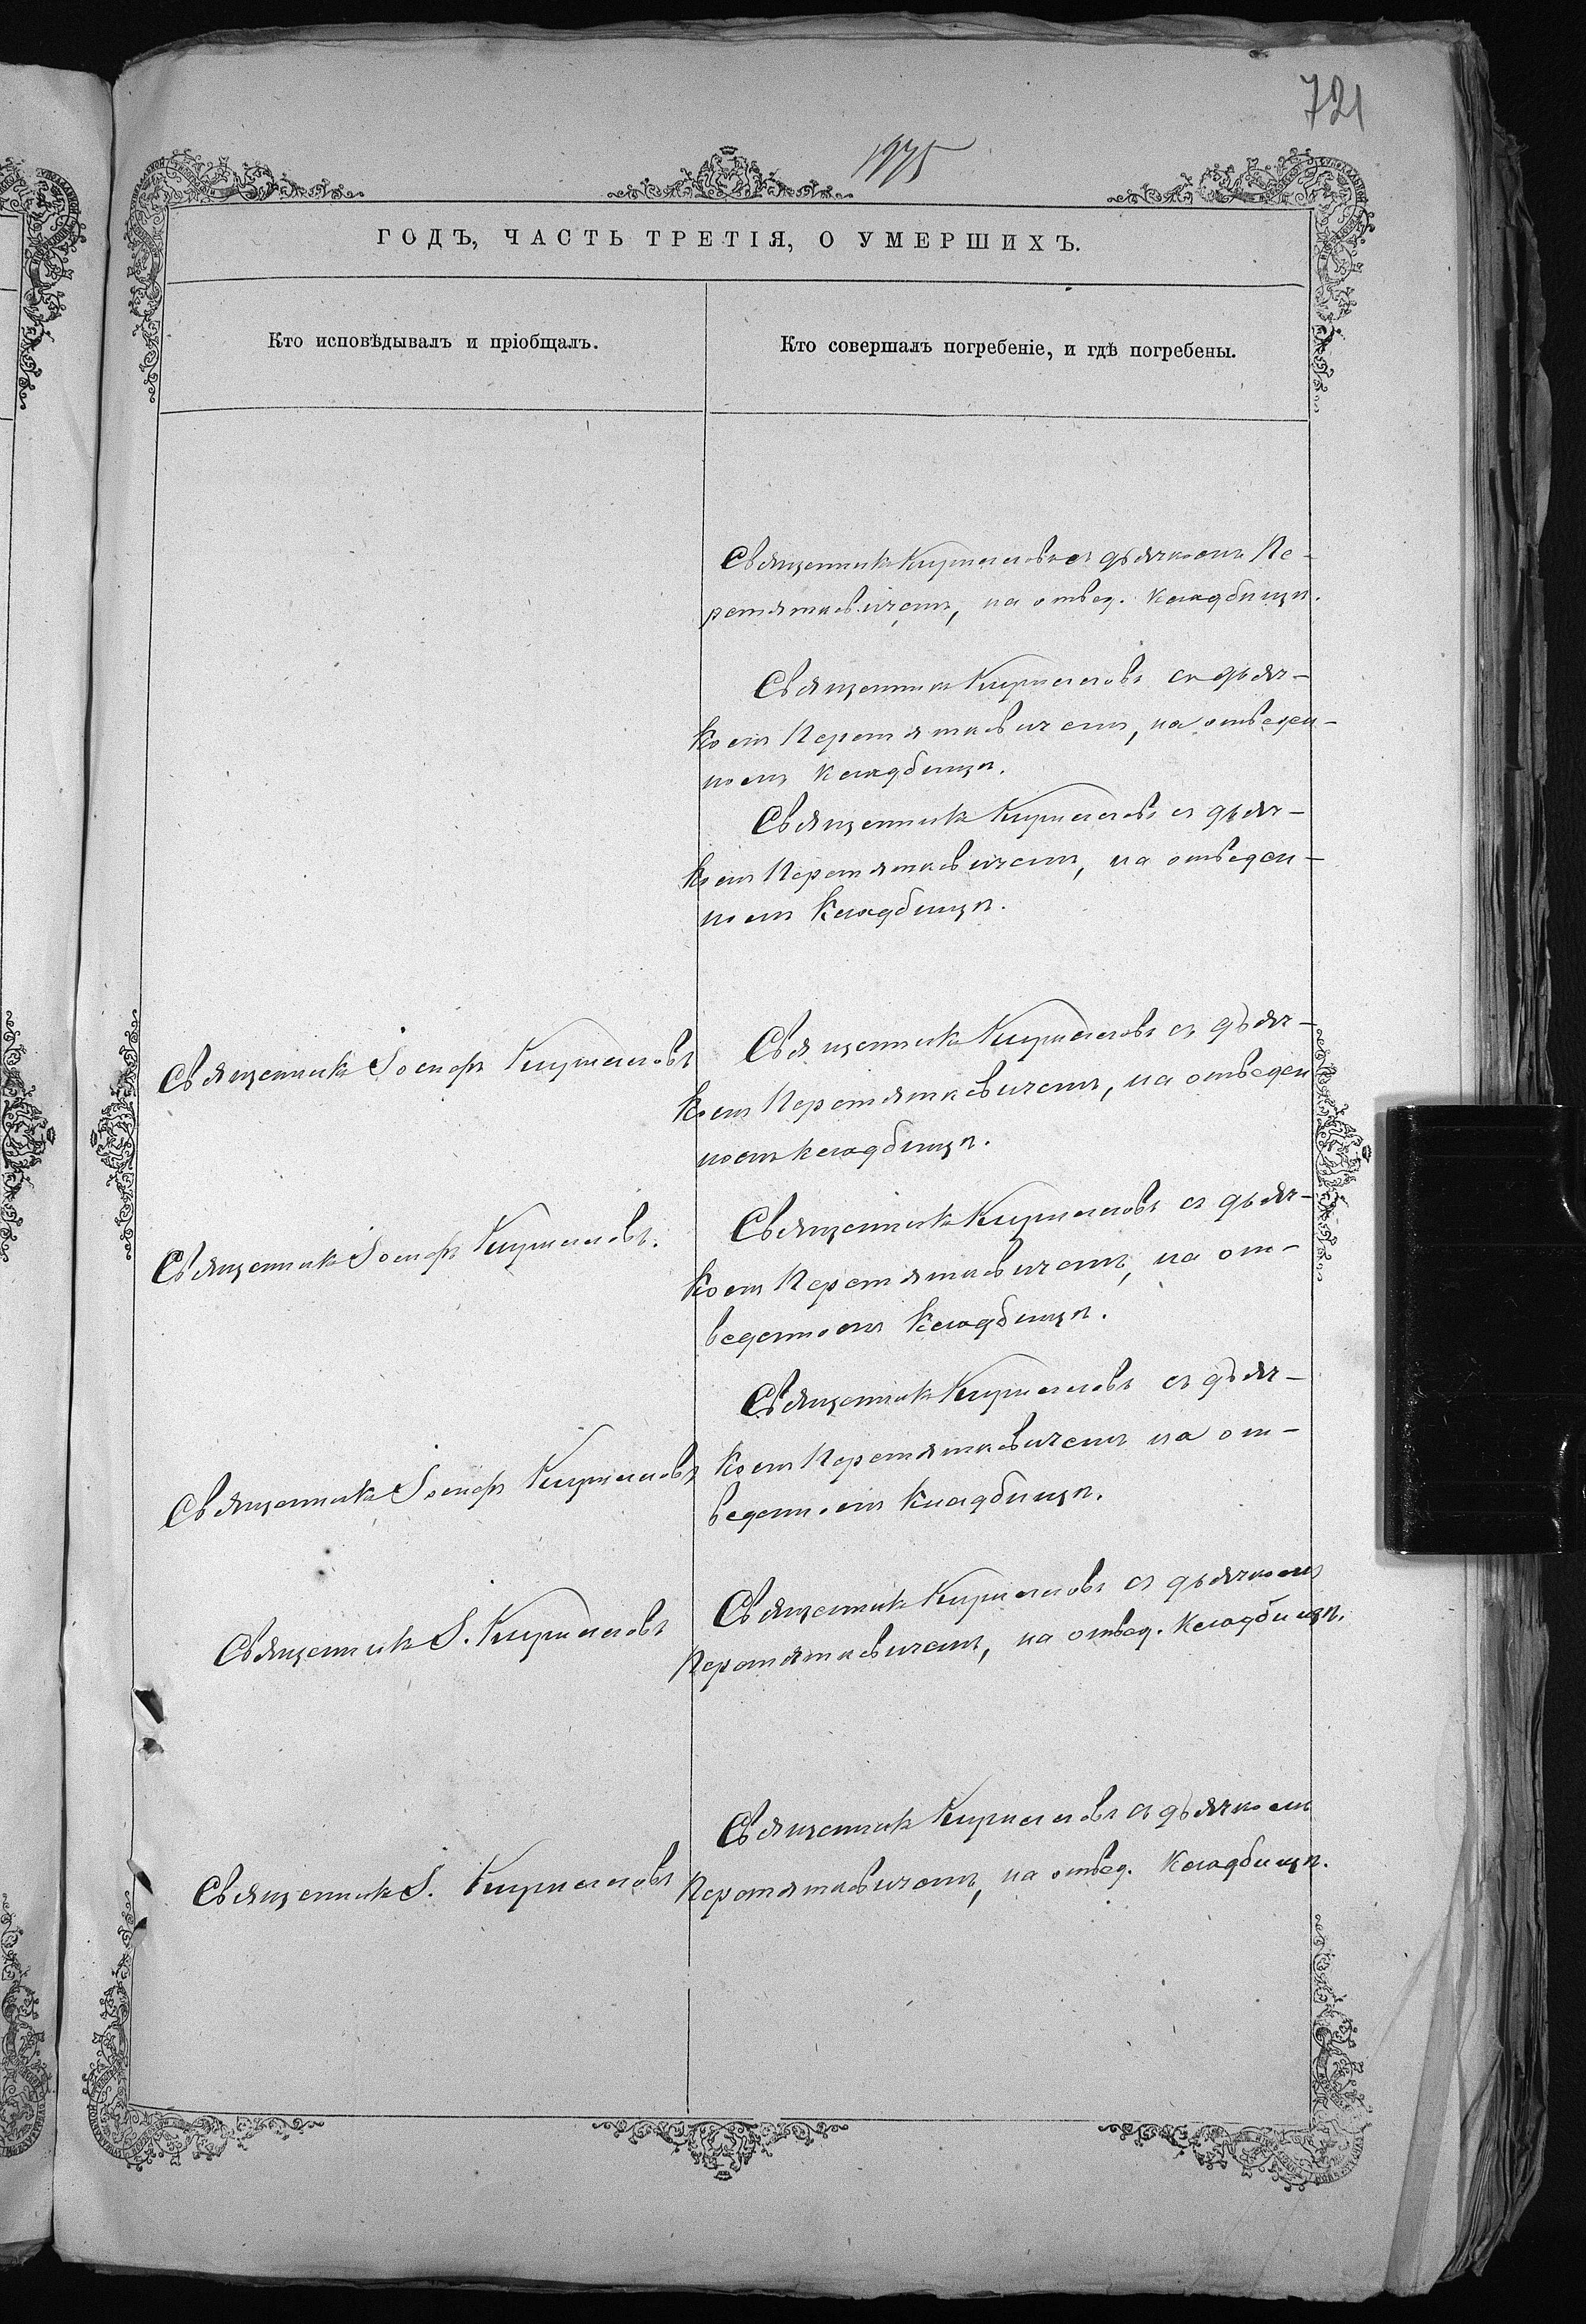 721
1975
ГОДЪ, ЧАСТЬ ТРЕТІЯ, О УМЕРШИХЪ.
Кто исповѣдывалъ и пріобщалъ.
Кто совершалъ погребеніе, и гдѣ погребены.
Священникъ Кирилловъ съ дьячкомъ Пе-
ретятковичемъ, на отвед. кладбищѣ.
Священникъ Кирилловъ съ дьяч-
комъ Перетятковичемъ, на отведен-
номъ кладбищѣ.
Священникъ Кирилловъ съ дьяч-
комъ Перетятковичемъ, на отведен-
номъ кладбищѣ.
Священникъ Іосифъ Кирилловъ
Священникъ Кирилловъ съ дьяч-
комъ Перетятковичемъ, на отведен
номъ кладбищѣ.
Священникъ Іосифъ Кирилловъ.
Священникъ Кирилловъ съ дьяч-
комъ Перетятковичемъ, на от-
веденномъ кладбищѣ.
Священникъ Іосифъ Кирилловъ
Священникъ Кирилловъ съ дьяч-
комъ Перетятковичемъ на от-
веденномъ кладбищѣ.
Священникъ І. Кирилловъ
Священникъ Кирилловъ съ дьячкомъ
Перетятковичемъ, на отвед. кладбищѣ.
Священникъ І. Кирилловъ
Священникъ Кирилловъ съ дьячкомъ
Перетятковичемъ, на отвед. кладбищѣ.